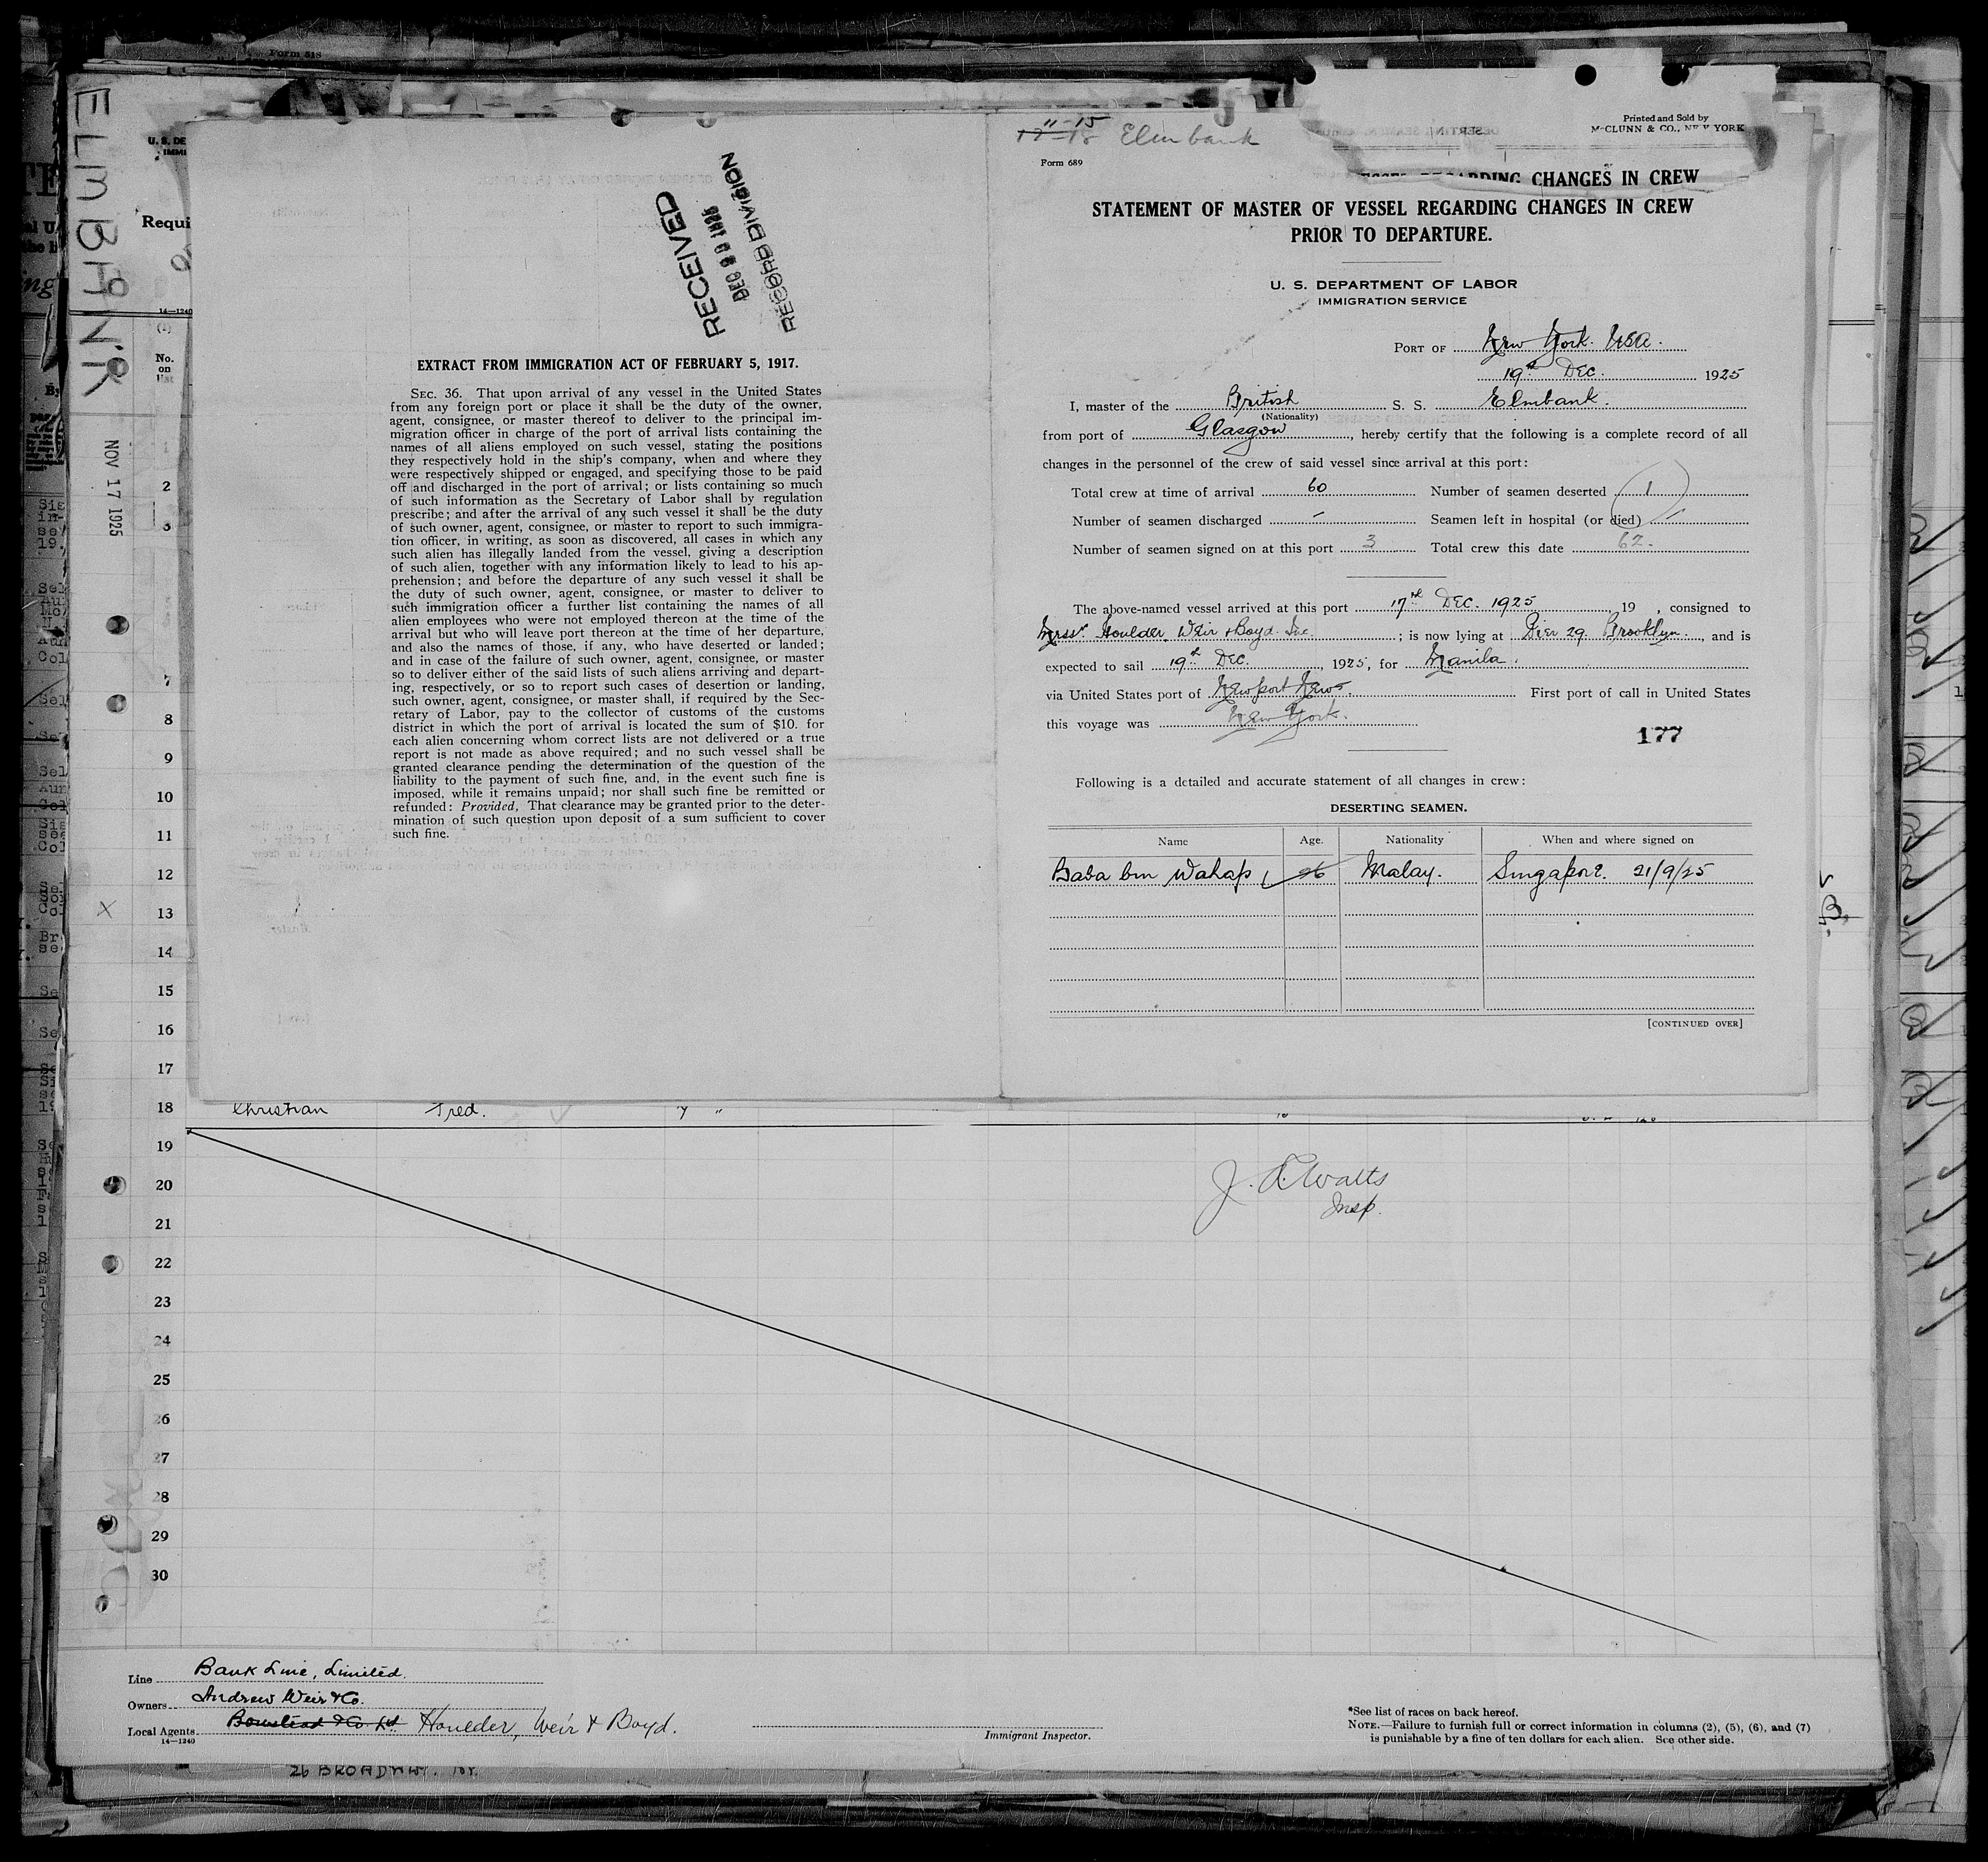 Form 518
ELMBANK
NOV 17 1925
Requi
14—1240
No.
on
list
2
3
7
8
9
10
11
12
13
14
15
16
17
18 Christian Fred. " "
19
20
21
22
23
24
25
26
27
28
29
30
RECEIVED
DEC 1925
RECORD DIVISION
EXTRACT FROM IMMIGRATION ACT OF FEBRUARY 5, 1917.
SEC. 36. That upon arrival of any vessel in the United States
from any foreign port or place it shall be the duty of the owner,
agent, consignee, or master thereof to deliver to the principal im-
migration officer in charge of the port of arrival lists containing the
names of all aliens employed on such vessel, stating the positions
they respectively hold in the ship's company, when and where they
were respectively shipped or engaged, and specifying those to be paid
off and discharged in the port of arrival; or lists containing so much
of such information as the Secretary of Labor shall by regulation
prescribe; and after the arrival of any such vessel it shall be the duty
of such owner, agent, consignee, or master to report to such immigra-
tion officer, in writing, as soon as discovered, all cases in which any
such alien has illegally landed from the vessel, giving a description
of such alien, together with any information likely to lead to his ap-
prehension; and before the departure of any such vessel it shall be
the duty of such owner, agent, consignee, or master to deliver to
such immigration officer a further list containing the names of all
alien employees who were not employed thereon at the time of the
arrival but who will leave port thereon at the time of her departure,
and also the names of those, if any, who have deserted or landed;
and in case of the failure of such owner, agent, consignee, or master
so to deliver either of the said lists of such aliens arriving and depart-
ing, respectively, or so to report such cases of desertion or landing,
such owner, agent, consignee, or master shall, if required by the Sec-
retary of Labor, pay to the collector of customs of the customs
district in which the port of arrival is located the sum of $10. for
each alien concerning whom correct lists are not delivered or a true
report is not made as above required; and no such vessel shall be
granted clearance pending the determination of the question of the
liability to the payment of such fine, and, in the event such fine is
imposed, while it remains unpaid; nor shall such fine be remitted or
refunded: Provided, That clearance may be granted prior to the deter-
mination of such question upon deposit of a sum sufficient to cover
such fine.
11-15
12-18 Elmbank
Form 689
Printed and Sold by
McCLUNN & CO., NEW YORK
REGARDING CHANGES IN CREW
STATEMENT OF MASTER OF VESSEL REGARDING CHANGES IN CREW
PRIOR TO DEPARTURE.
U. S. DEPARTMENT OF LABOR
IMMIGRATION SERVICE
PORT OF New York. USA.
19th DEC. 1925
I, master of the British S. S. Elmbank.
(Nationality)
from port of Glasgow, hereby certify that the following is a complete record of all
changes in the personnel of the crew of said vessel since arrival at this port:
Total crew at time of arrival 60 Number of seamen deserted 1
Number of seamen discharged - Seamen left in hospital (or died) -
Number of seamen signed on at this port 3 Total crew this date 62.
The above-named vessel arrived at this port 17th DEC. 1925 19 , consigned to
Messrs Houlder, Weir & Boyd. Inc. ; is now lying at Pier 29. Brooklyn., and is
expected to sail 19th DEC. , 1925, for Manila.
via United States port of Newport News. First port of call in United States
this voyage was New York.
177
Following is a detailed and accurate statement of all changes in crew:
DESERTING SEAMEN.
Name Age. Nationality When and where signed on
Baba bin Wahap 26 Malay. Singapore. 21/9/25
[CONTINUED OVER]
J. A. Watts
Insp.
Line Bank Line, Limited.
Owners Andrew Weir & Co.
Local Agents Boustead & Co. Ltd Houlder, Weir & Boyd.
14—1240
Immigrant Inspector.
*See list of races on back hereof.
NOTE.—Failure to furnish full or correct information in columns (2), (5), (6), and (7)
is punishable by a fine of ten dollars for each alien. See other side.
26 BROADWAY. NY.